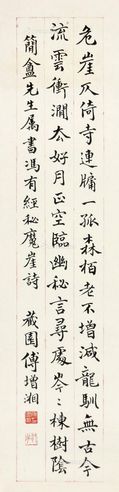 危崖仄倚寺連牗一孤森栢老不增減龍馴無古今
流雲衝澗去好月正空臨幽秘言尋處岑岑棟樹陰
簡盦先生屬書馮有經秘魔崖詩 藏園傅增湘